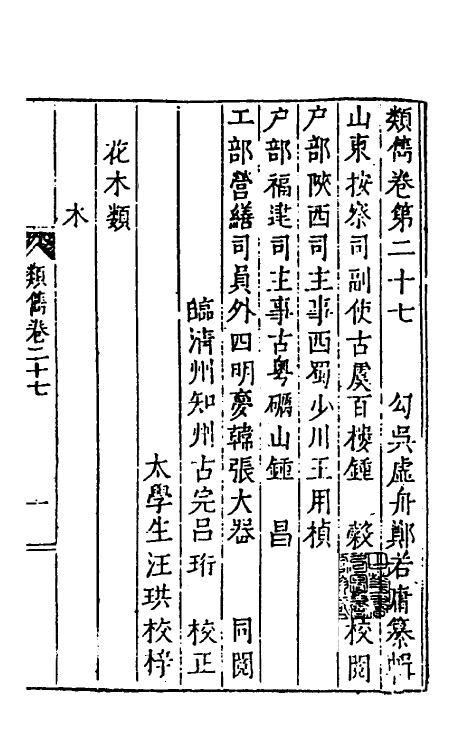 類雋卷第二十七　勾吳虛舟鄭若庸纂輯
山東按察司副使古虞百樓鍾　穀校閱
户部陝西司主事西蜀少川王用楨
户部福建司主事古粤礪山鍾　昌
工部營繕司員外四明夢韓張大器　同閱
臨清州知州古完呂珩　校正
太學生汪珙校梓
花木類
木
類雋卷二十七　一